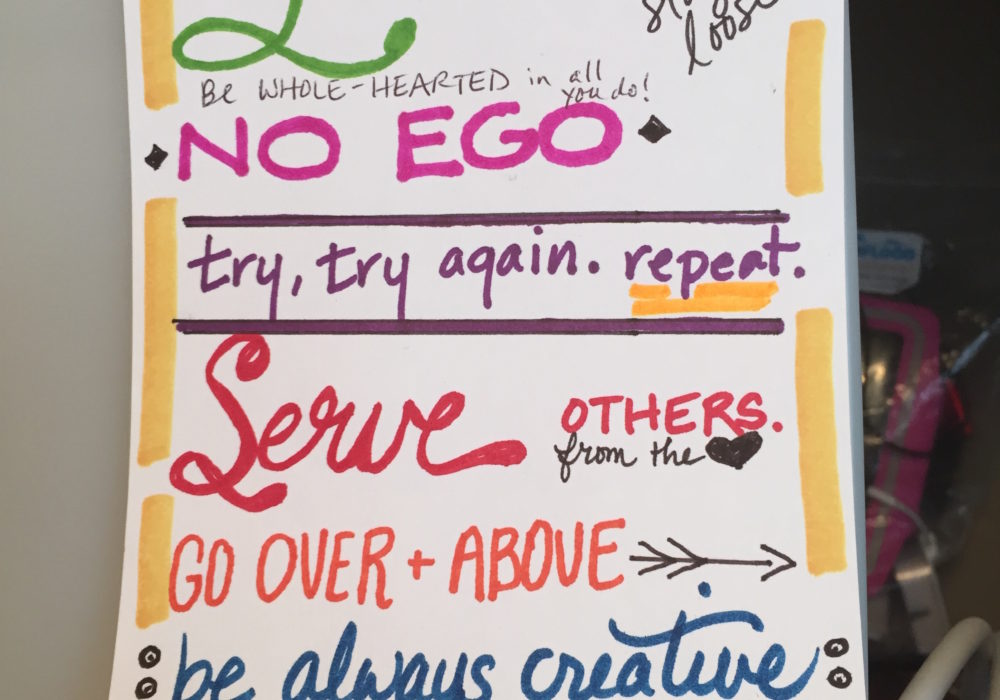 loose
Be WHOLE-HEARTED in all you do!
NO EGO
try, try again. repeat.
Serve OTHERS.
from the
GO OVER + ABOVE
be always creative